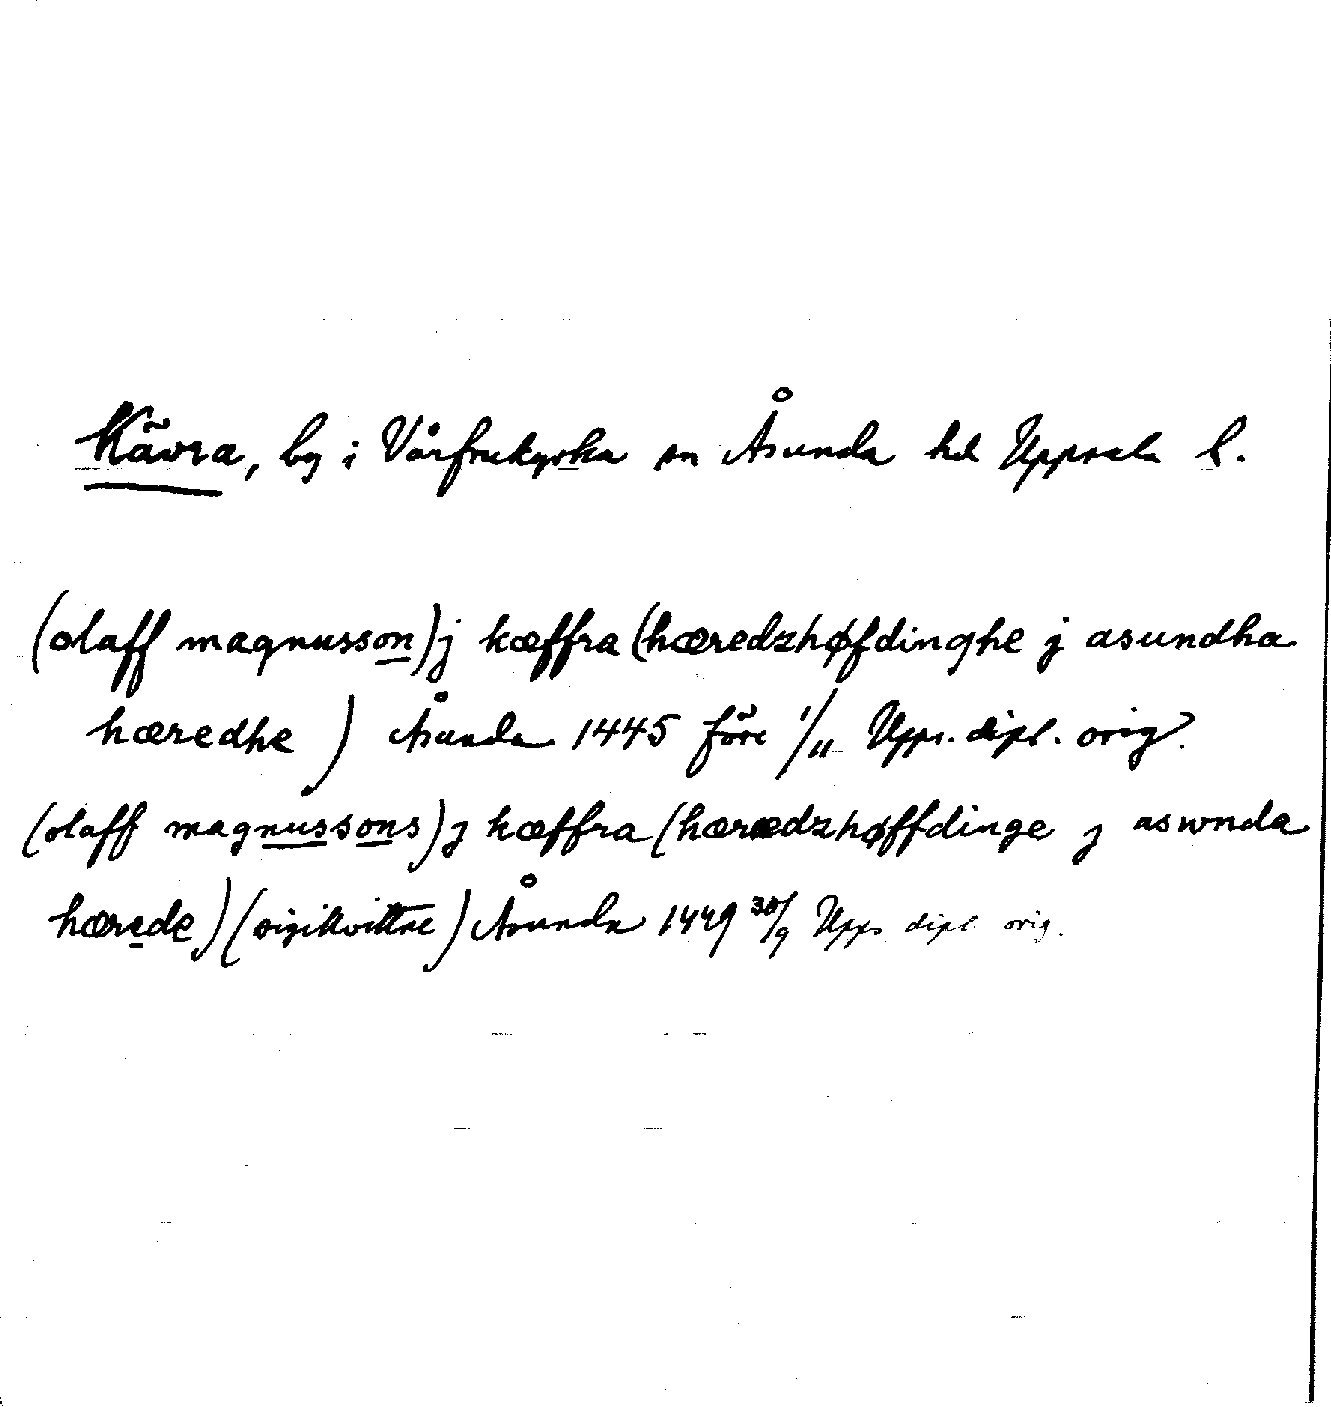 Kävra, by i Vårfrukyrka sn Åsunda hd Uppsala l.
(olaff magnusson) j kæffra (hæredzhøfdinghe j asundha
hæredhe) Åsunda 1445 före 1/11 Upps. dipl. orig.
(olaff magnussons) j kæffra (hærædzhøffdinge j aswnda
hærede) (sigillvittne) Åsunda 1449 30/9 Upps dipl orig.